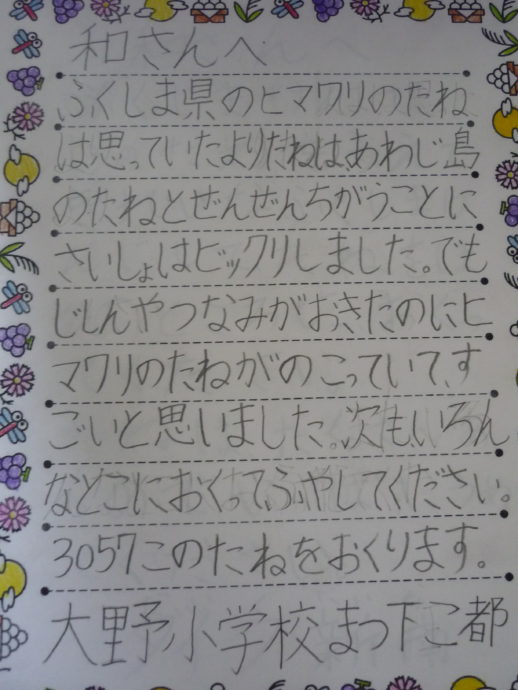 和さんへ
ふくしま県のヒマワリのたね
は思っていたよりだねは、あわじ島
のたねとぜんぜんちがうことに
さいしょはビックリしました。でも
じしんやつなみがおきたのにヒ
マワリのたねがのこっていて、す
ごいと思いました。次も、いろん
なとこにおくって、ふやしてください。
3057このたねをおくります。
大野小学校まつ下こ都